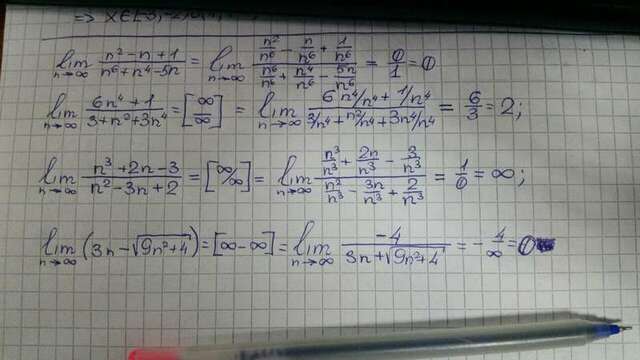 => x∈[-3,-2)∪(
lim n→∞ (n²-n+1)/(n⁶+n⁴-5n) = lim n→∞ (n²/n⁶ - n/n⁶ + 1/n⁶)/(n⁶/n⁶ + n⁴/n⁶ - 5n/n⁶) = 0/1 = 0
lim n→∞ (6n⁴+1)/(3+n²+3n⁴) = [∞/∞] = lim n→∞ (6n⁴/n⁴ + 1/n⁴)/(3/n⁴ + n²/n⁴ + 3n⁴/n⁴) = 6/3 = 2;
lim n→∞ (n³+2n-3)/(n²-3n+2) = [∞/∞] = lim n→∞ (n³/n³ + 2n/n³ - 3/n³)/(n²/n³ - 3n/n³ + 2/n³) = 1/0 = ∞;
lim n→∞ (3n-√(9n²+4)) = [∞-∞] = lim n→∞ -4/(3n+√(9n²+4)) = -4/∞ = 0